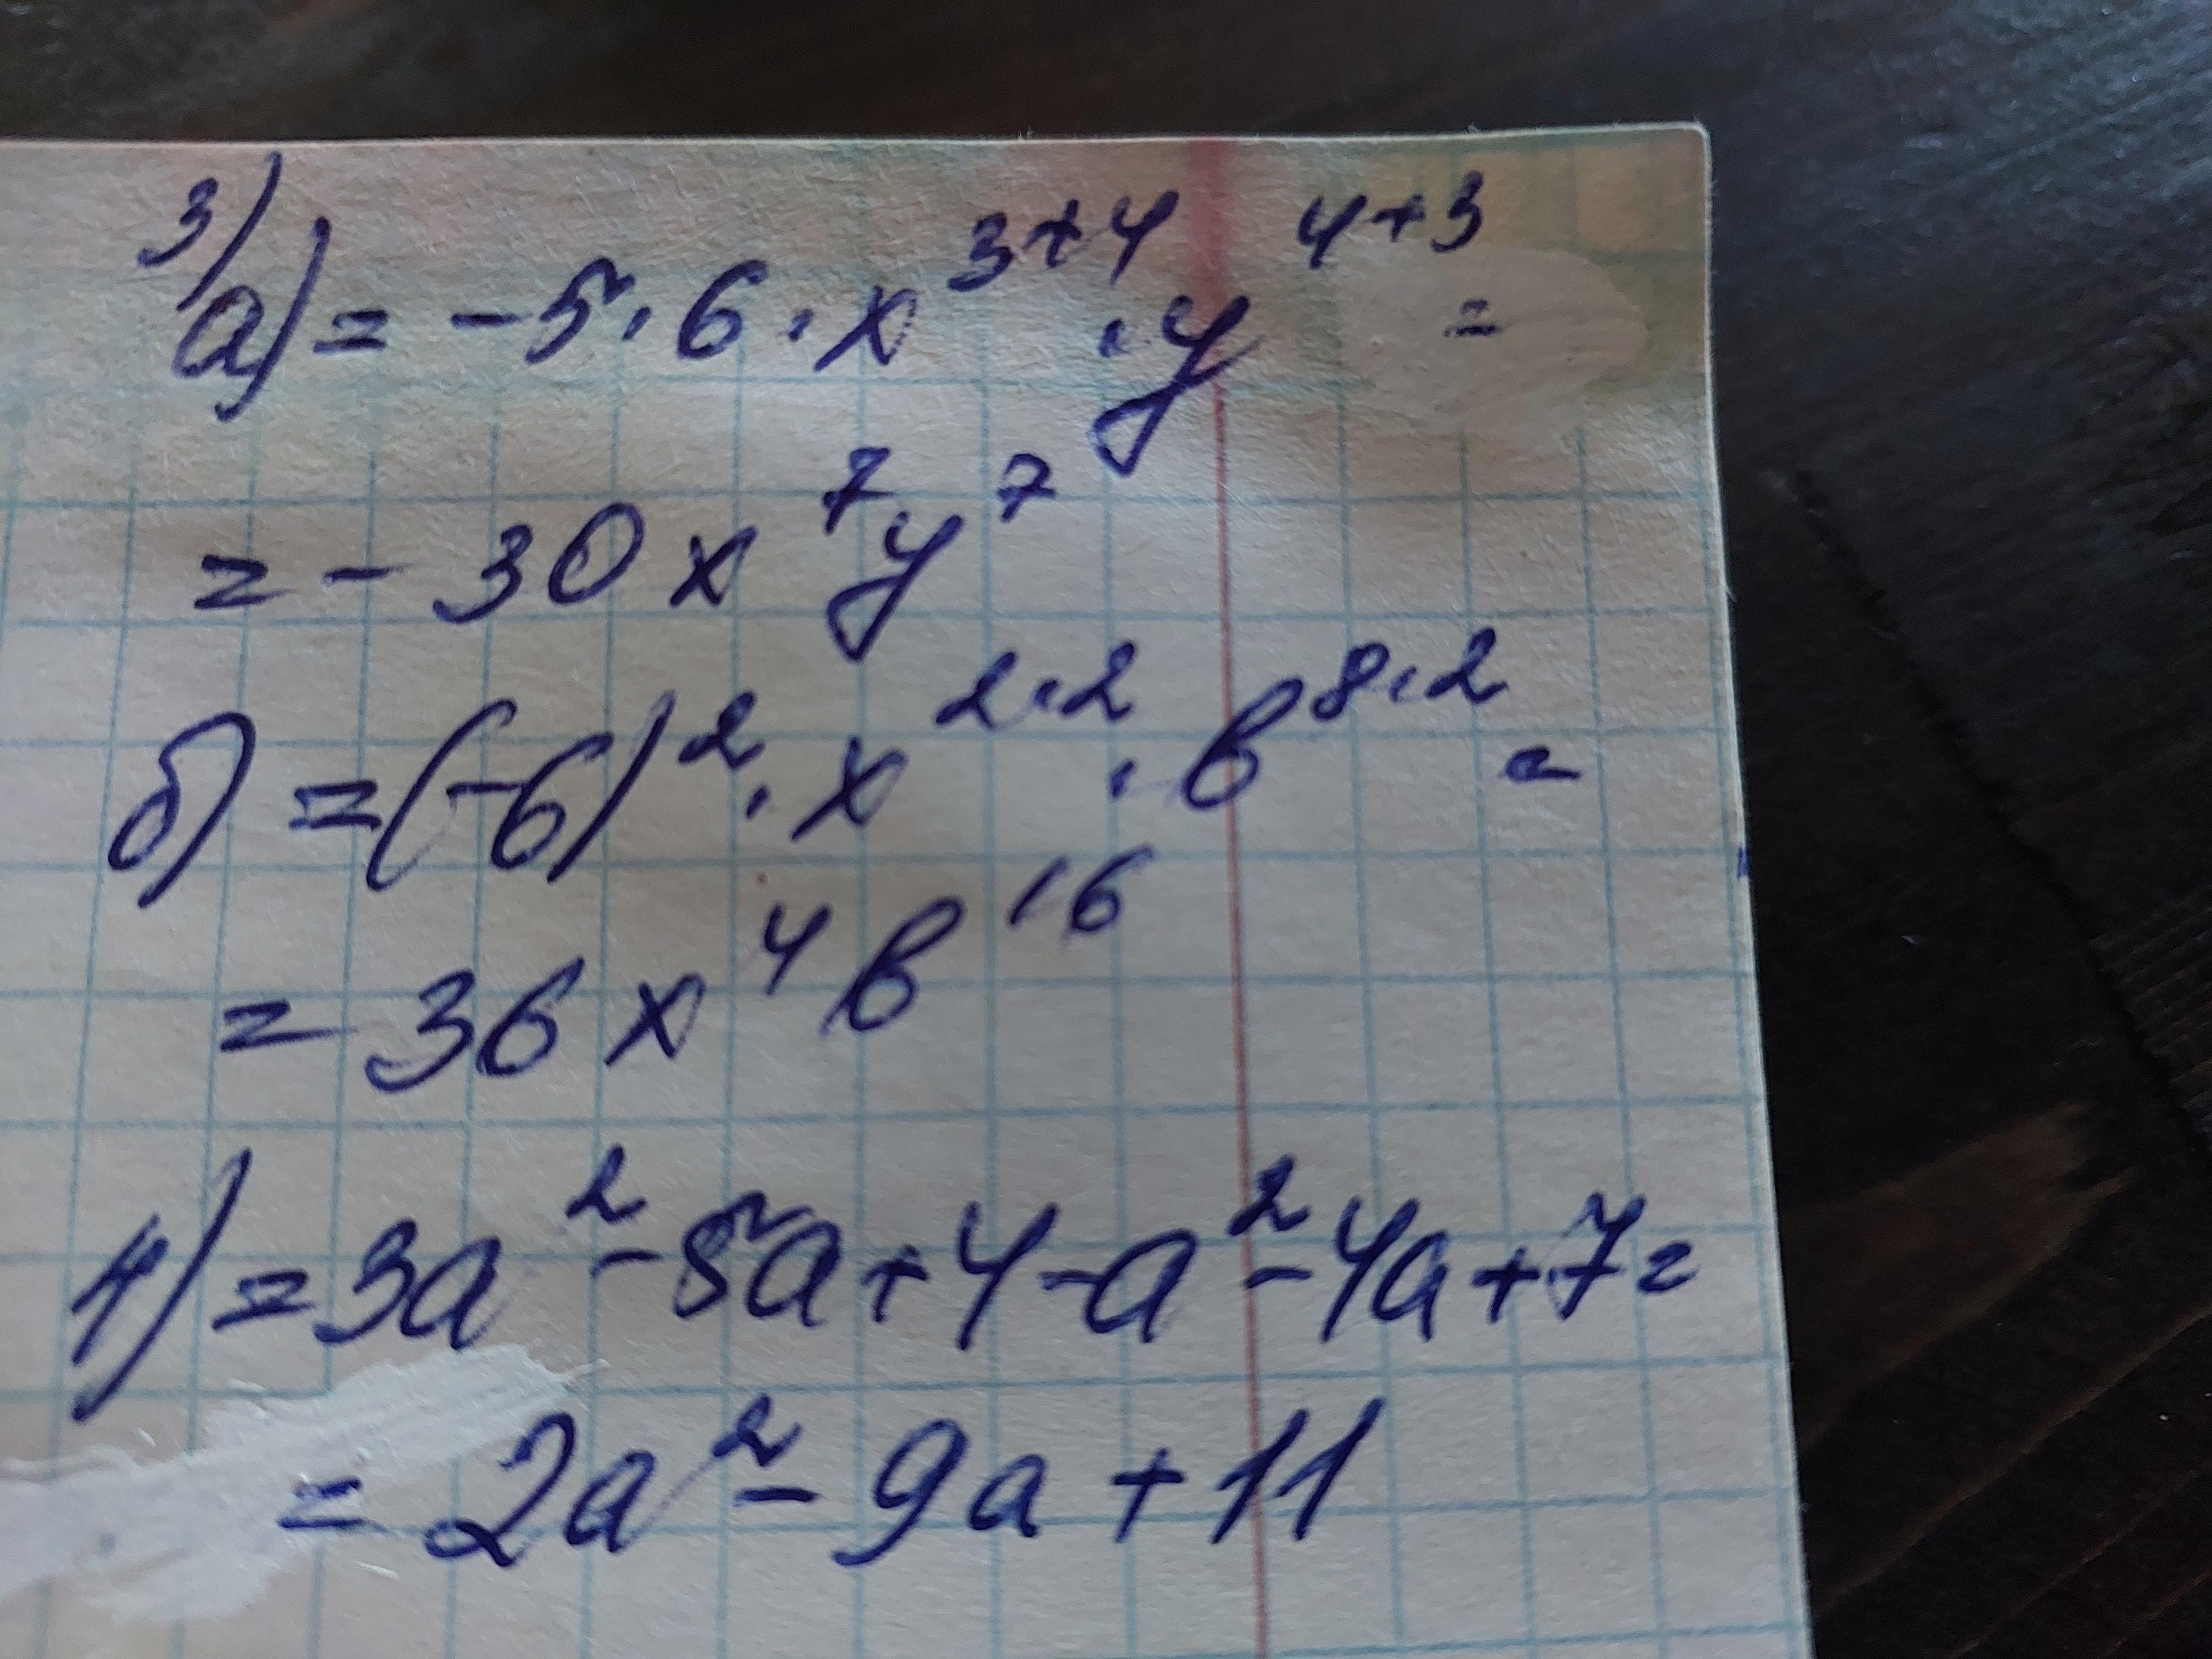 3)
а) = -5·6·x³⁺⁴·y⁴⁺³ =
= -30x⁷y⁷
б) = (-6)²·x²˙²·в⁸˙² =
= 36x⁴в¹⁶
4) = 3a² - 5a + 4 - a² - 4a + 7 =
= 2a² - 9a + 11